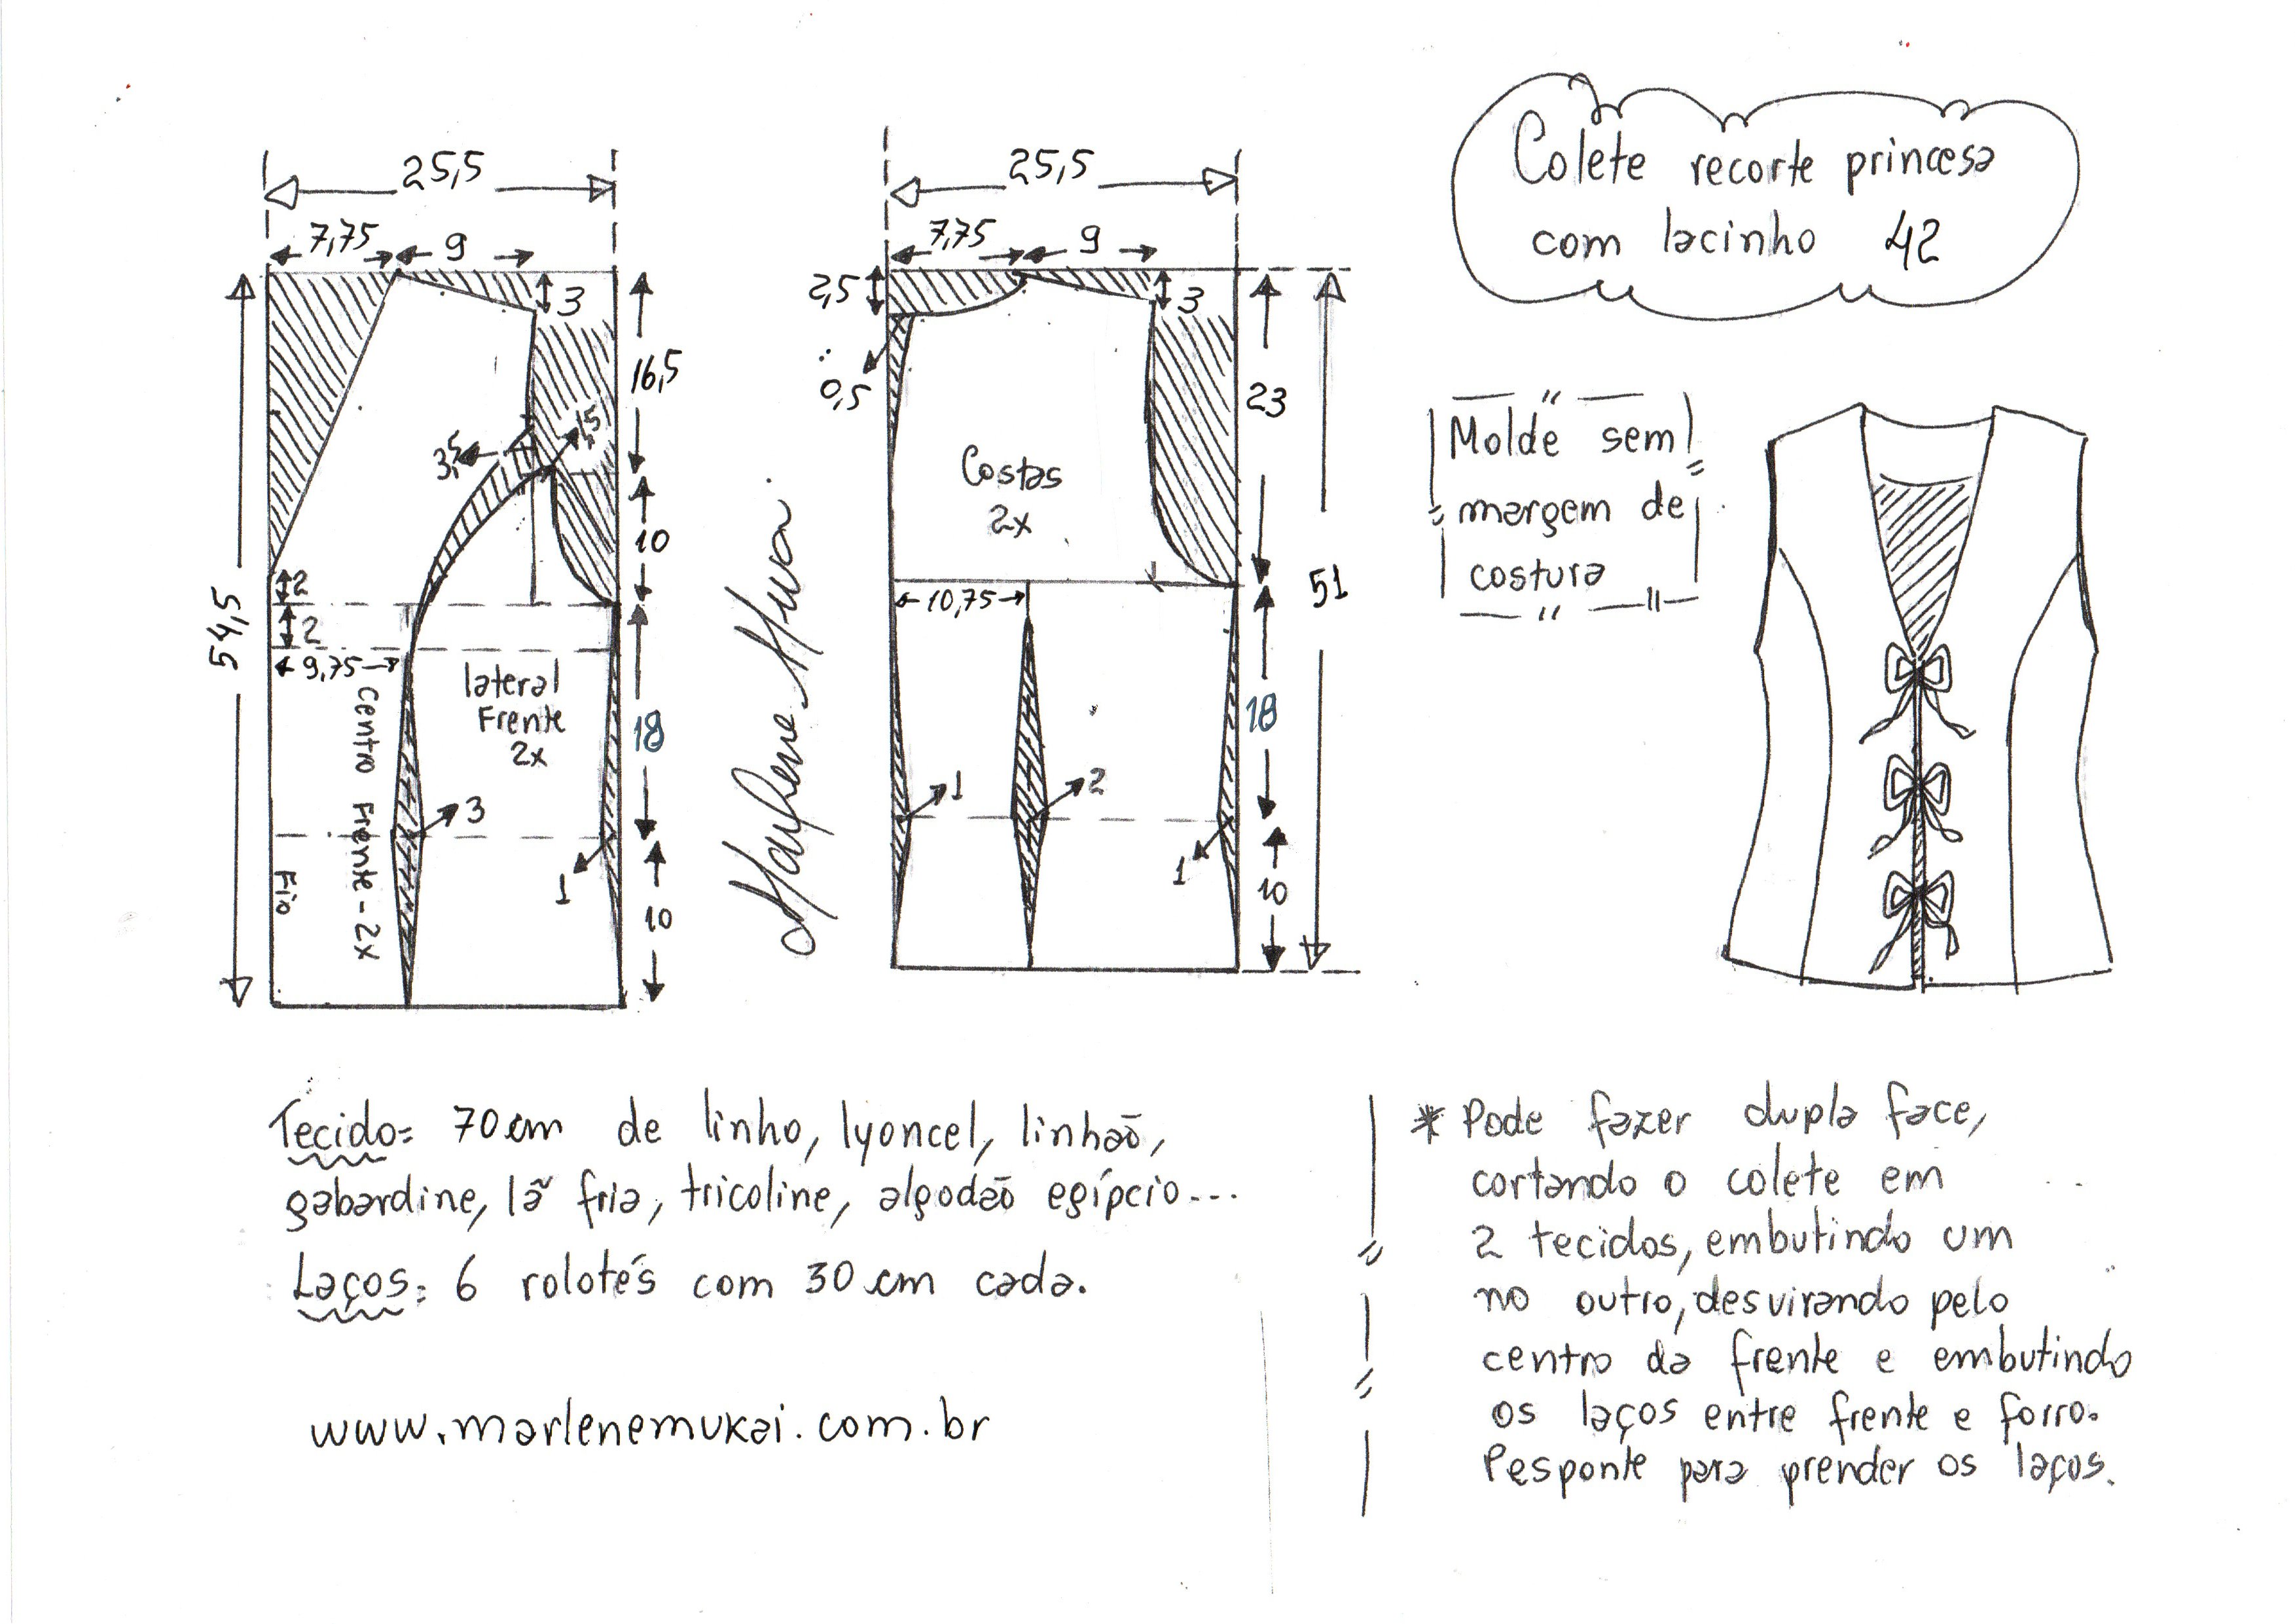 Colete recorte princesa
com lacinho 42
25,5
7,75
9
3
16,5
3,5
1,5
10
2
2
54,5
9,75
lateral
Frente
2x
Centro Frente - 2x
18
3
1
Fio
10
Marlene Mukai
25,5
7,75
9
2,5
3
0,5
23
Costas
2x
51
10,75
18
1
2
1
10
Molde sem
margem de
costura
Tecido= 70 cm de linho, lyoncel, linhão,
gabardine, lã fria, tricoline, algodão egípcio...
Laços: 6 rolotês com 30 cm cada.
www.marlenemukai.com.br
* Pode fazer dupla face,
cortando o colete em
2 tecidos, embutindo um
no outro, desvirando pelo
centro da frente e embutindo
os laços entre frente e forro.
Pesponte para prender os laços.